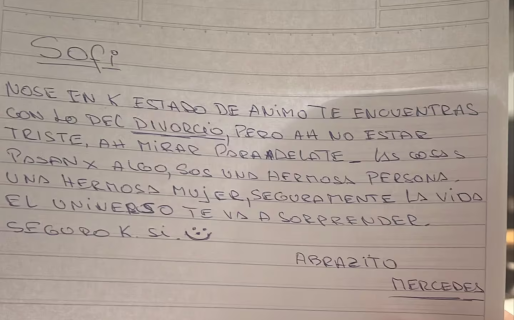 Sofi
NOSE EN K ESTADO DE ANIMO TE ENCUENTRAS
CON LO DEL DIVORCIO, PERO AH NO ESTAR
TRISTE, AH MIRAR PARAADELATE_ LAS COSAS
PASAN X ALGO, SOS UNA HERMOSA PERSONA.
UNA HERMOSA MUJER, SEGURAMENTE LA VIDA
EL UNIVERSO TE VA A SORPRENDER.
SEGURO K. Si. 
ABRAZITO
MERCEDES